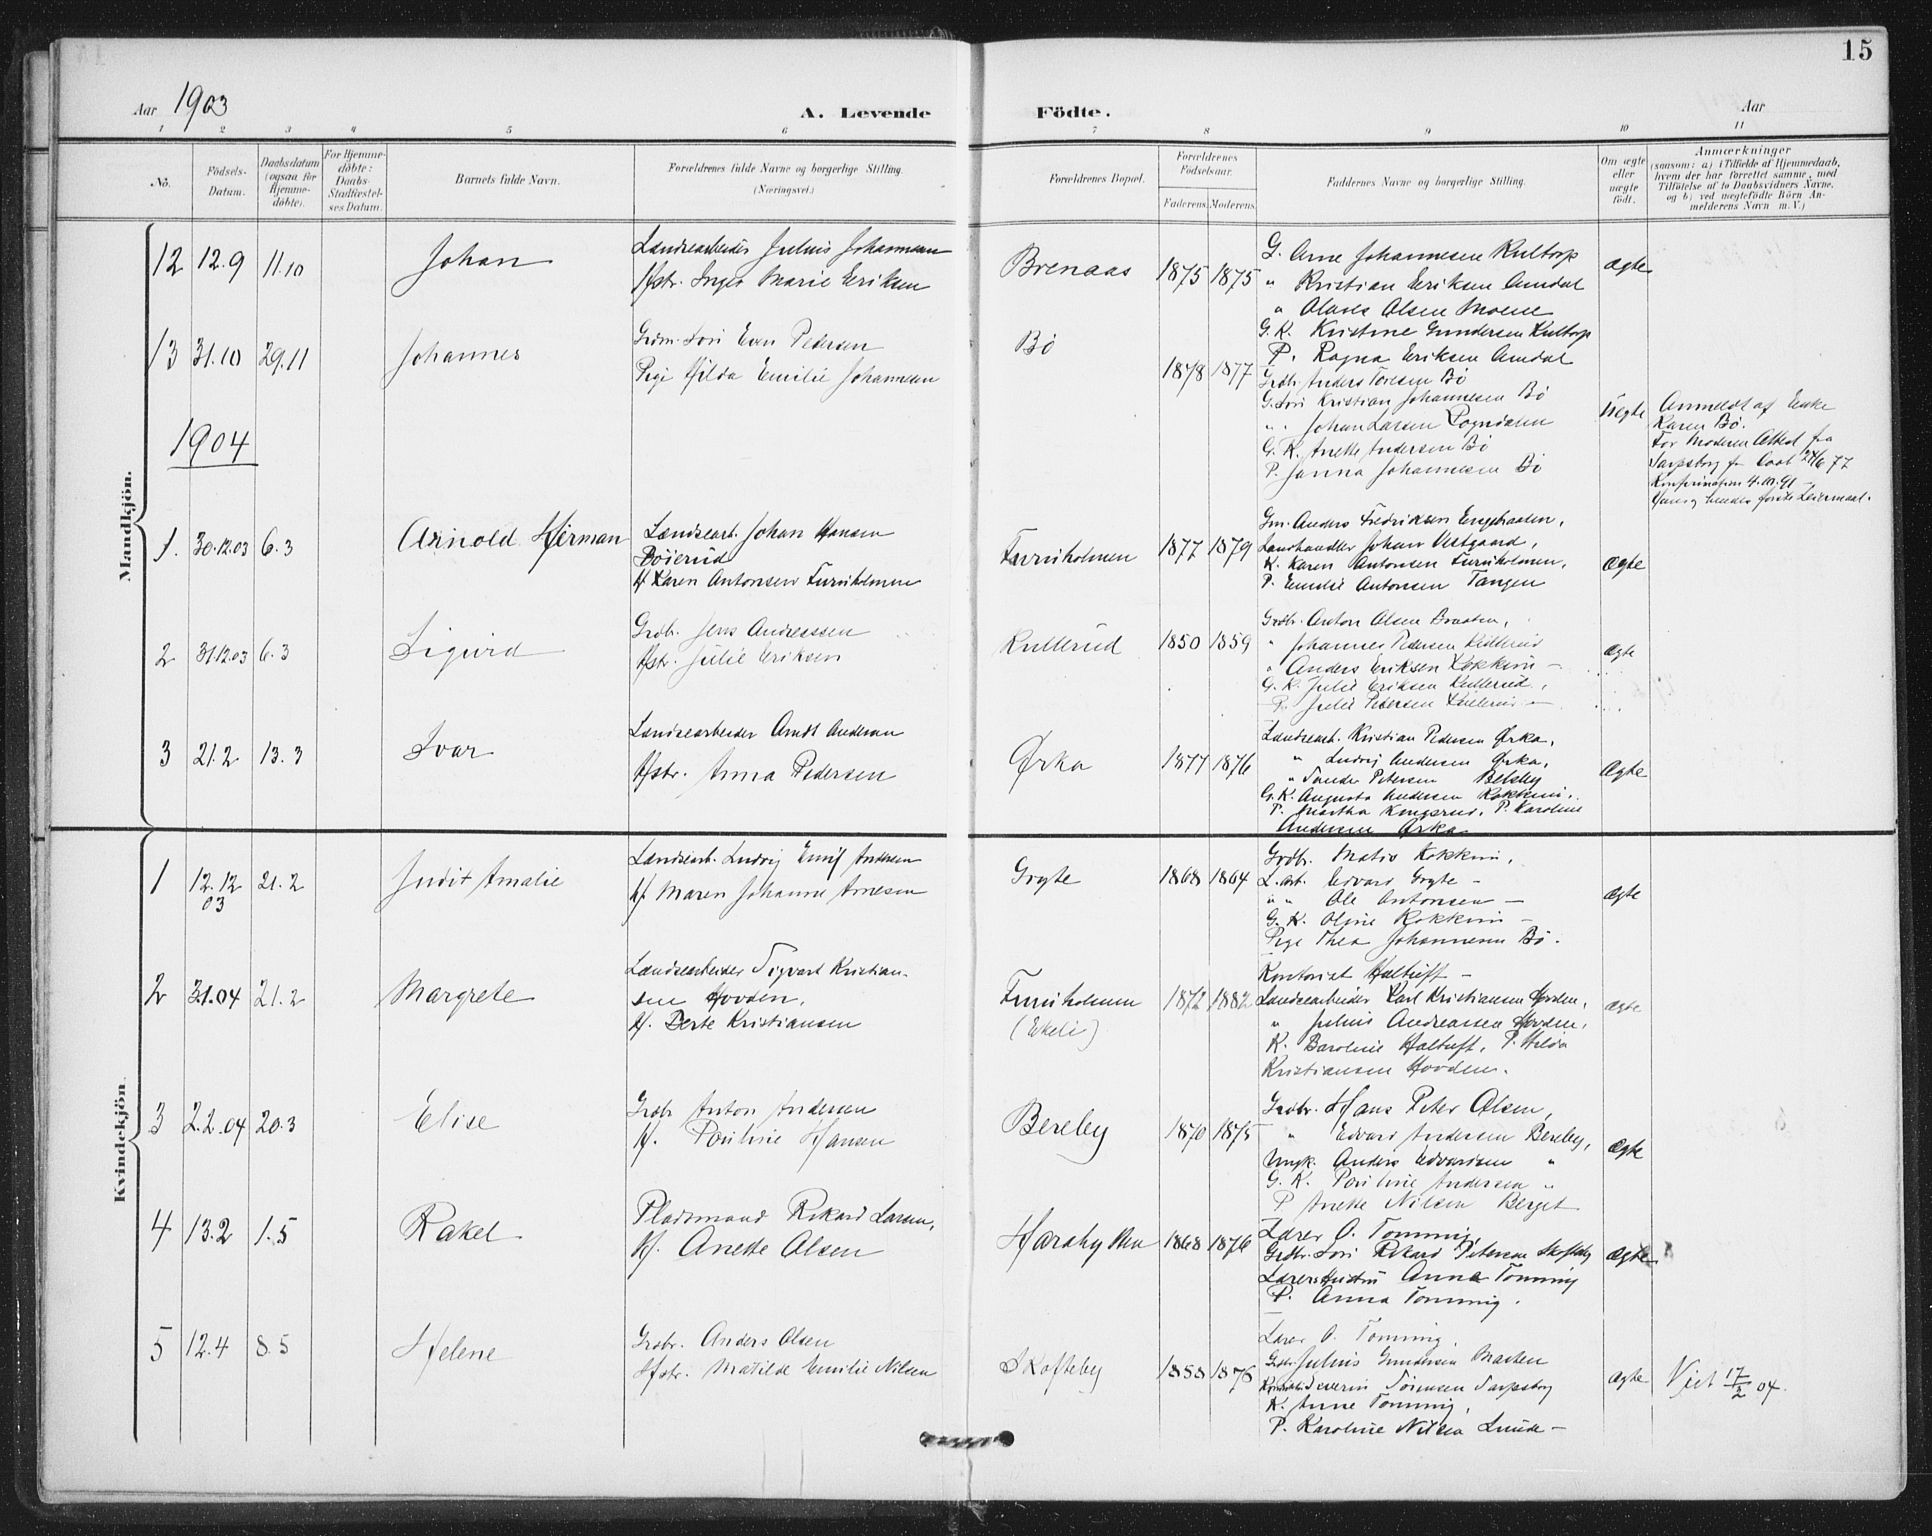 15
Aar 1903
A. Levende
Födte.
Aar
1 2 3 4 5 6 7 8 9 10 11
No.
Födsels-
Datum.
Daabsdatum
(ogsaa for
Hjemme-
döbte).
For Hjemme-
döbte:
Daabs-
Stadfæstel-
ses Datum.
Barnets fulde Navn.
Forældrenes fulde Navne og borgerlige Stilling.
(Næringsvei.)
Forældrenes Bopæl.
Forældrenes
Födselsaar.
Faderens. Moderens.
Faddernes Navne og borgerlige Stilling.
Om ægte
eller
uægte
födt.
Anmærkninger
(saasom: a) i Tilfælde af Hjemmedaab,
hvem der har forrettet samme, med
Tilföielse af to Daabsvidners Navne,
og b) ved uægtefödte Börn An-
melderens Navn m. V.)
Mandkjön.
12 12.9 11.10
Johan
Landsearbeider Julius Johannesen
Hstr. Inger Marie Eriksen
Brenaas
1875 1875
G. Arne Johannesen Kultorp
" Kristian Eriksen Amdal
" Olaves Olsen Moene
G. K. Kristine Gundersen Kultorp
P. Ragna Eriksen Amdal
ægte
13 31.10 29.11
Johannes
Grdm. Søn Evan Pedersen
Pige Hilda Emilie Johannesen
Bö
1878 1877
Grdbr. Anders Toresen Bö
G. Søn Kristian Johannesen Bö
" " Johan Larsen
G. K. Anette Andersen Bö
P. Janna Johannesen Bö
Uægte
Anmeldt af Enke
Karen Bø.
For Moderen Attest fra
Sarpsborg fr Daab 24/6 77
Konfirmation 4.10.91 –
Hans og hendes første Leiermaal.
1904
1. 30.12.03 6.3
Arnold Herman
Landsearb. Johan Hansen
Böierud
H. Karen Antonsen Furuholmen
Furuholmen
1877 1879
Gm. Anders Fredriksen Engebraaten,
Landhandler Johan Vestgaard,
K. Karen Antonsen Furuholmen,
P. Emilie Antonsen Tangen
ægte
2 31.12.03 6.3
Sigurd
Grdb. Jens Andreassen
Hstr. Julie Eriksen
Kullerud
1850 1859
Grdbr. Anton Olsen Braaten,
" Johannes Pedersen Kullerud
" Anders Eriksen Kokkim –
G. K. Julie Eriksen Kullerud,
P. Julie Petersen Kullerud –
ægte
3 21.2 13.3
Ivar
Landsearbeider Arndt Andersen
Hstr. Anna Pedersen
Ørka
1877 1876
Landsearb. Kristian Pedersen Ørka,
" Ludvig Andersen Ørka,
" Petersen Belsby
G. K. Augusta Andersen Kokkim,
P. Martha Kongsrud, P. Karoline
Andersen Ørka
Ægte
Kvindekjön.
1 12.12 21.2
03
Judit Amalie
Landsearb. Ludvig Emil Andersen
H. Maren Johanne Arnesen
Gryte
1868 1864
Grdbr. Mativ Kokkim,
L. arb. Edvard Gryte –
" " Ole Antonsen –
G. K. Oline Kokkim –
Pige Thea Johannesen Bö.
ægte
2 3.1.04 21.2
Margrete
Landsearbeider Sigvart Kristian-
sen Hovden,
H. Berte Kristiansen
Furuholmen
(Ekeli)
1872 1882
Kontorist Haltuft –
Landsearbeider Karl Kristiansen Hovden,
" Julius Andreasen Hovden,
K. Baroline Haltuft, P. Hilda
Kristiansen Hovden.
ægte
3 2.2.04 20.3
Elise
Grdb. Anton Andersen
H. Pouline Hansen
Bereby
1870 1875
Grdbr. Hans Peter Olsen,
" Edvard Andersen Bereby,
Ungk. Anders Edvardsen "
G. K. Pouline Andersen "
P Anette Nilsen Berget
ægte
4 13.2 1.5
Rakel
Pladsmand Rikard Larsen,
H. Anette Olsen
Haraby
1868 1876
Lærer O. Tomming,
Grdbr. Søn Rikard Petersen Skofteby
Lærers Hustru Anna Tomming
P. Anna Tomming.
ægte
5 12.4 8.5
Helene
Grdbr. Anders Olsen
Hstr. Matilde Emilie Nilsen
Skofteby
1858 1876
Lærer O. Tomming,
Grdbr. Julius Gundersen
Severin Sörensen Sarpsborg
K. Anne Tomming,
P. Karoline Nilsen Lunde –
ægte
Viet 17/2 04.